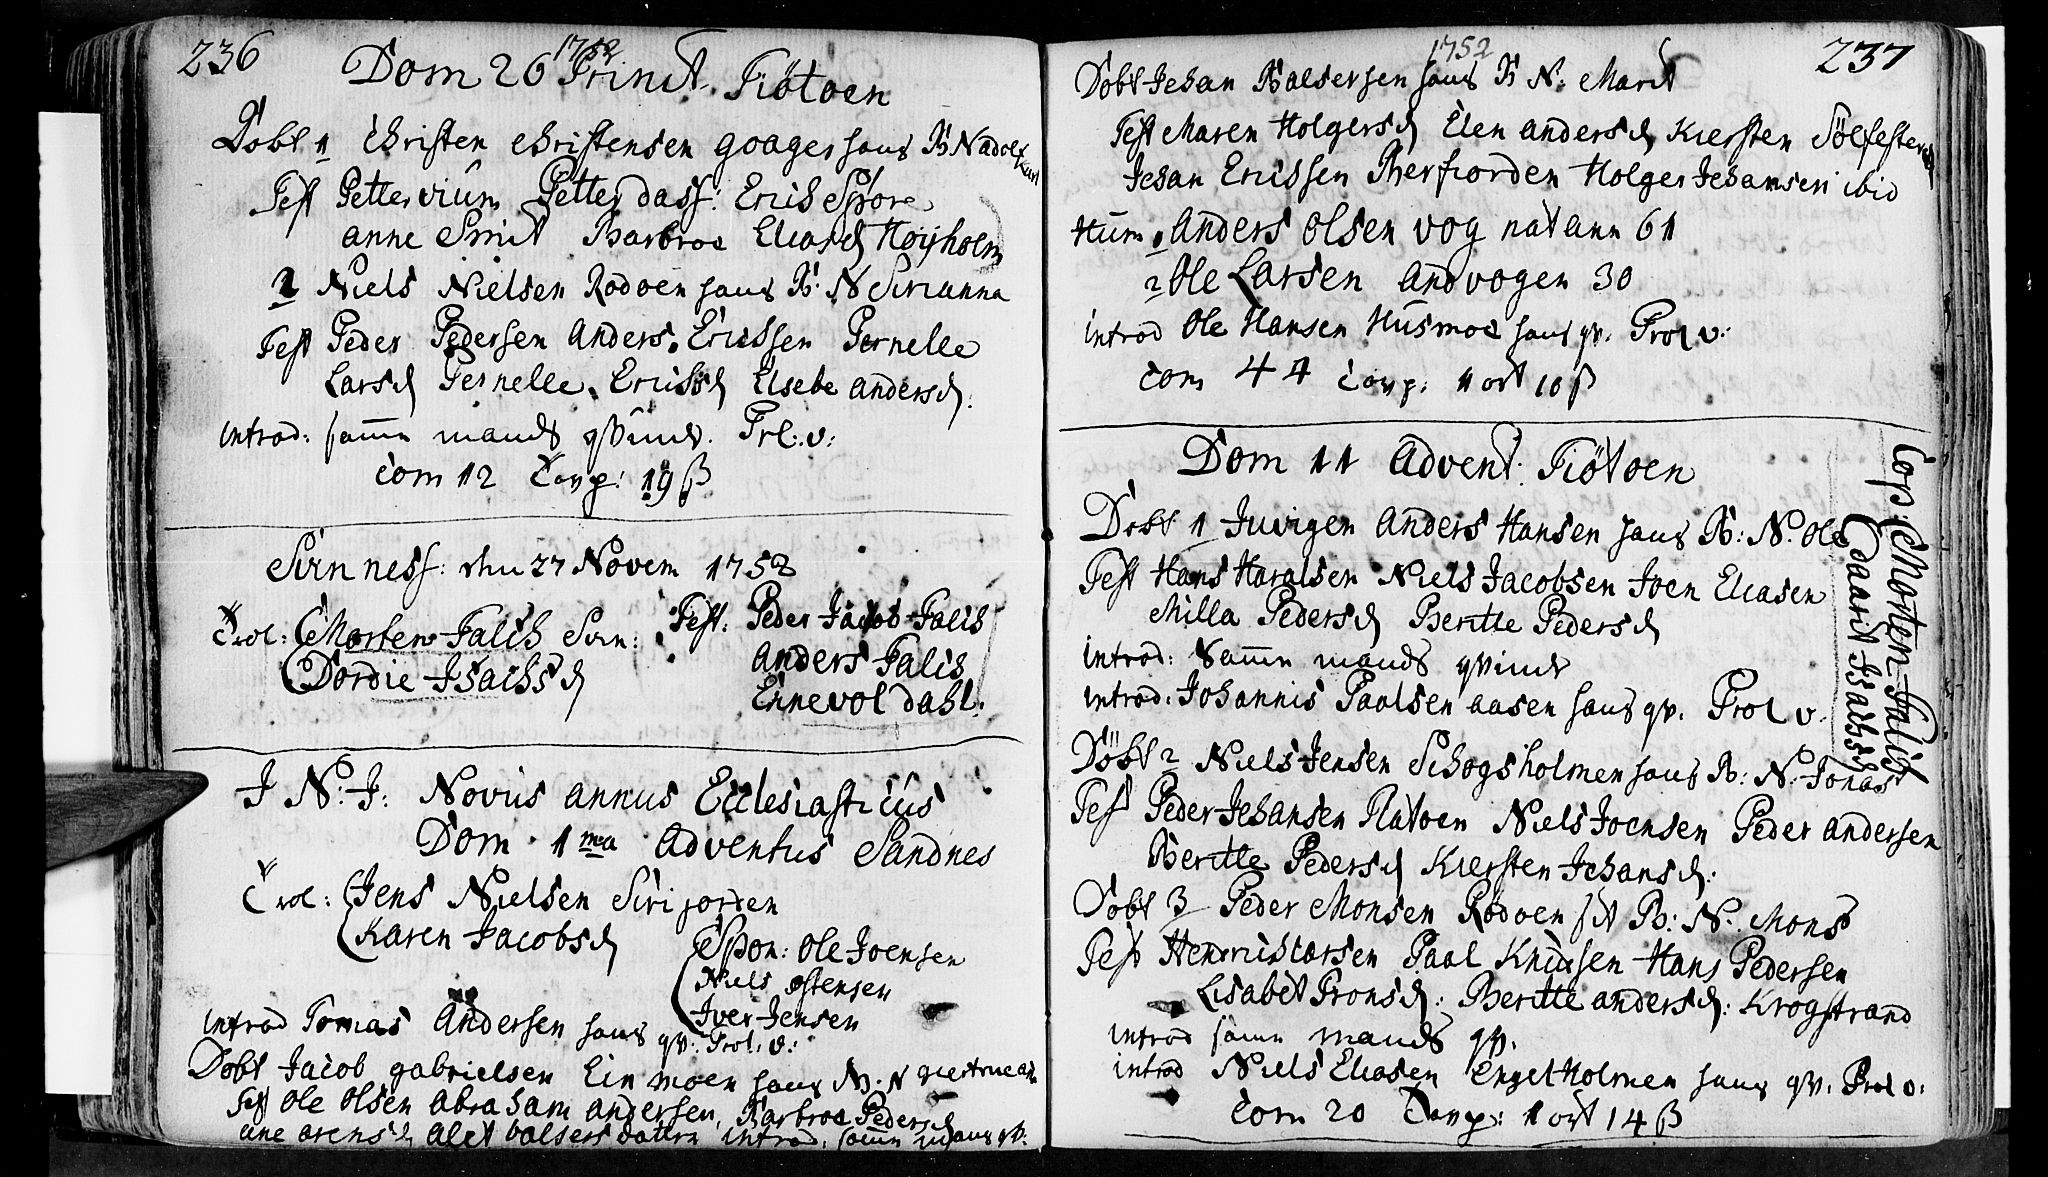 236
1752
Dom 26 Trinit. Tiötoen
Döbt 1 Christen Christensen goager hans B N adolf
Karl
Test Petter vium Petter dass: Erich Spöre
anne Smit Barbroe Eliasd Höyholm
2 Niels Nielsen Rodoen hans B: N Sirianna
Test Peder Pedersen Anders Erichsen Pernelle
Larsd Pernelle Erichsd Elsebe andersd:
introd: samm mands qvind. Prol: v:
Com 12 Tavp: 19 ß
Svinness: den 27 Novem 1752
Trol: Morten Falch Svin: Test: Peder Jacob Falch
Dordie Isachsd Anders Falch
Ennevol dahl:
I N: J: Novus annus Ecclesiasticus
Dom 1ma Adventus Sandnes
Trol: Jens Nielsen Siri jorden
Karen Jacobsd Spon: Ole Joensen
Niels ostensen
Iver Jensen
introd Tomas Andersen hans qv: Prol: v:
Döbt Jacob gabrielsen Ein moen hans B. N
Test Ole Olsen Abraham andersen, Barbroe Pedersd
ane arensd Alet balsers datter introd: samm mans qv.
1752
237
Döbt Jehan Balsersen hans B N: Marit
Test Maren Holgersd Elen andersd Kiersten Sölfestersd
Jehan Erichsen Berfiorden Holger Jehansen ibid
Hum. 1 Anders Olsen vog nat ann 61
2 Ole Larsen Andvogen 30
introd Ole Hansen Husmoe hans qv. Prol v:
Com 44 Tavp: 1 ort 10 ß
Dom 11 Advent: Tiötoen
Döbt 1 Juvigen Anders Hansen hans B: N. Ole
Test Hans Haralsen Niels Jacobsen Joen Eliasen
Milla Pedersd Beritte Pedersd
introd: Samm mands qvind
introd: Johannis Paalsen aasen hans qv. Prol v.
Döbt 2 Niels Jensen Schogsholmen hans B: N: Jonas
Test Peder Jehansen Ratoen Niels Joensen Peder andersen
Beritte Pedersd Kiersten Jehansd:
Döbt 3 Peder Monsen Rödoen sit B: N. Mons
Test Henrich Larsen Paal Knudsen Hans Pedersen
Lisabet Tronsd: Beritte andersd: Krogstrand
introd samm mands qv.
introd Niels Eliasen Engelholmen hans qv. Prol v:
Com 20 Tavp: 1 ort 14 ß
Cop: Morten Falch
Daarit Isachsd